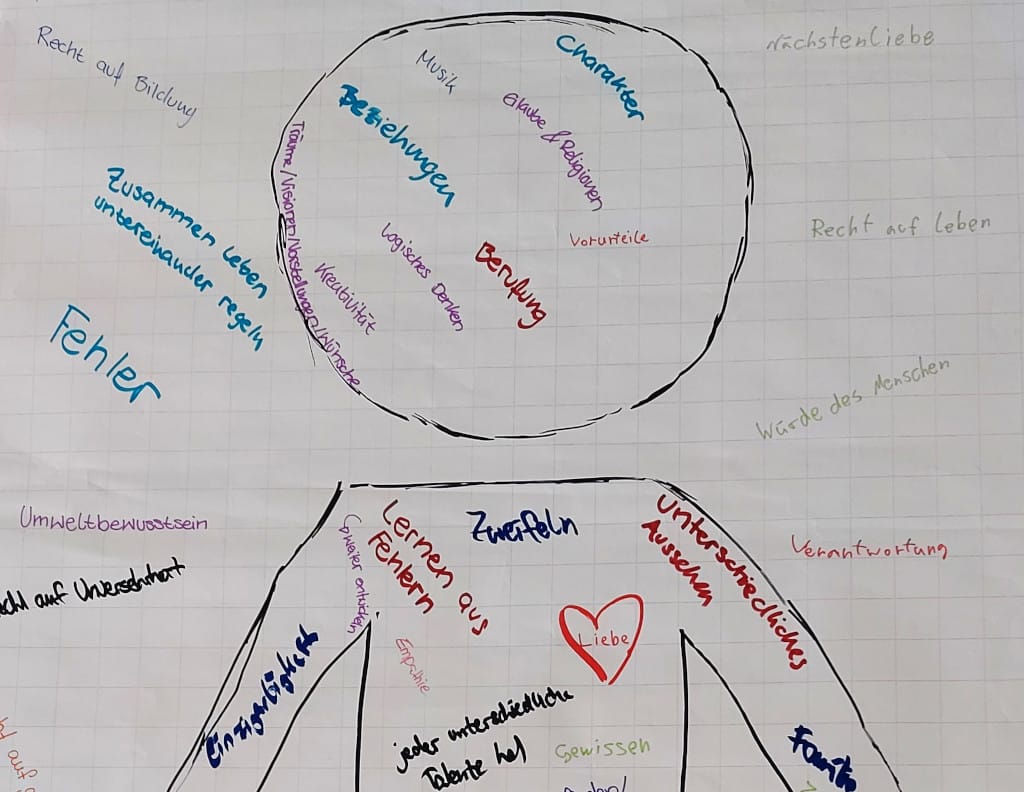 Recht auf Bildung
Musik
Charakter
Nächstenliebe
Beziehungen
Glaube & Religionen
Träume/Visionen/Vorstellungen/Wünsche
Zusammen leben
untereinander regeln
Logisches Denken
Berufung
Vorurteile
Recht auf Leben
Kreativität
Fehler
Würde des Menschen
Umweltbewusstsein
auf Unversehrtheit
weiter entwickeln
Lernen aus
Fehlern
Zweifeln
Unterschiedliches
Aussehen
Verantwortung
Liebe
Empathie
Einzigartigkeit
jeder unterschiedliche
Talente hat
Gewissen
auf